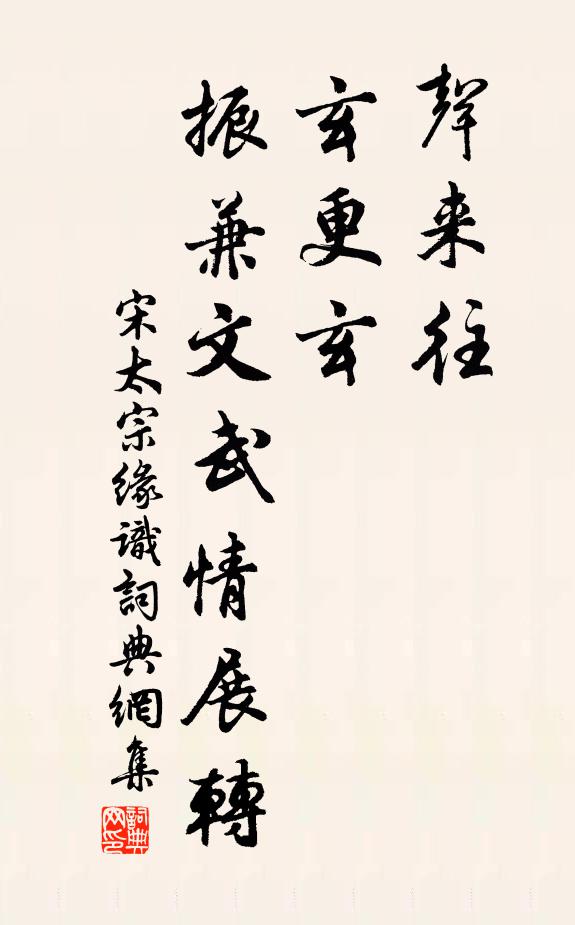 聲来往
玄更玄
振兼文武情展轉
宋太宗緣識詞典網集
詞典網印